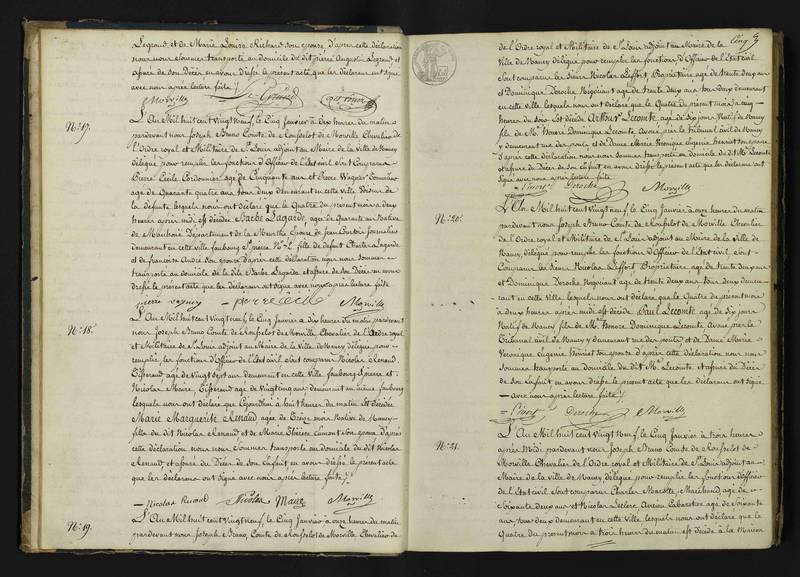 Legrand, et de Marie Louise Richard son épouse. D'après cette déclaration
nous nous sommes transporté au domicile du dit pierre Augustin Legrand et
assuré de son Décès en avons dressé le présent acte que les déclarans ont signé
avec nous après lecture faite
Morville
N.o 17.
L'An Mil huit cent vingt neuf, le Cinq Janvier à Dix heures du matin
pardevant nous Joseph Bruno Comte de Rouxelot de Morville Chevalier de
l'Ordre royal et Militaire de St Louis adjoint au Maire de la Ville de Nancy
délégué pour remplir les fonctions d'Officier de l'Etat civil sont comparus
Pierre Cécile Cordonnier agé de Cinquante ans et Pierre Wagner
agé de Quarante quatre ans tous deux demeurant en cette ville Voisins de
la défunte lesquels nous ont déclaré que le Quatre du présent mois à deux
heures après midi est décédée Barbe Lagarde, agée de quarante ans Native
de Département de la Meurthe Epouse de Jean Journalier
demeurant en cette ville faubourg St pierre No 2. fille de défunt Charles Lagarde
et de francoise André son épouse d'après cette déclaration nous nous sommes
transporté au domicile de la dite Barbe Lagarde et assuré de son Décès en avons
dressé le présent acte que les déclarans ont signé avec nous après lecture faite
pierre vagner pierre cecile Morville
N.o 18.
L'An Mil huit cent vingt neuf, le Cinq Janvier à Dix heures du matin pardevant
nous Joseph Bruno Comte de Rouxelot de Morville, Chevalier de l'Ordre royal
et Militaire de St Louis adjoint au Maire de la Ville de Nancy délégué pour
remplir les fonctions d'Officier de l'Etat civil sont comparus Nicolas Renaud
Tisserand agé de vingt sept ans demeurant en cette Ville faubourg St pierre et
Nicolas Maire, Tisserand agé de vingt cinq ans demeurant au même faubourg
lesquels nous ont déclaré que Cejourd'hui à huit heures du matin est décédée
Marie Marguerite Renaud agée de Treize mois Native de Nancy
fille du dit Nicolas Renaud et de Marie Thérèse Aumont son épouse D'après
cette déclaration nous nous sommes transporté au domicile du dit Nicolas
Renaud et assuré du Décès de son Enfant en avons dressé le présent acte
que les déclarans ont signé avec nous après lecture faite
Nicolas Renaud Nicolas Maire Morville
N.o 19.
L'An Mil huit cent vingt neuf, le Cinq Janvier à onze heures du matin
pardevant nous Joseph Bruno, Comte de Rouxelot de Morville Chevalier de
Cinq
de l'Ordre royal et Militaire de St Louis adjoint au Maire de la
Ville de Nancy délégué pour remplir les fonctions d'Officier de l'Etat civil
sont comparus les Sieurs Nicolas Leffort Propriétaire agé de trente deux ans
et Dominique Deroche Négociant agé de trente deux ans tous deux demeurant
en cette ville, lesquels nous ont déclaré que le Quatre du présent mois à cinq
heures du soir est décédé Arthur Lecomte agé de Dix jours Natif de Nancy
fils de Mr Honoré Dominique Lecomte, Avoué près le tribunal civil de Nancy
y demeurant rue des ponts et de Dame Marie Véronique Eugénie Henriet son épouse
D'après cette déclaration nous nous sommes transporté au domicile du dit Mr Lecomte
et assuré du Décès de son Enfant en avons dressé le présent acte que les déclarans ont
signé avec nous après lecture faite
Deroche Morville
N.o 20.
L'An Mil huit cent vingt neuf, le Cinq Janvier à onze heures du matin
pardevant nous Joseph Bruno Comte de Rouxelot de Morville Chevalier
de l'Ordre royal et Militaire de St Louis adjoint au Maire de la Ville de
Nancy délégué pour remplir les fonctions d'Officier de l'Etat civil, sont
Comparus les Sieurs Nicolas Leffort Propriétaire agé de trente deux ans
et Dominique Deroche Négociant agé de trente deux ans tous deux demeu-
rant en cette ville lesquels nous ont déclaré que le Quatre du présent mois
à deux heures après midi est décédé Paul Lecomte agé de Dix jours
Natif de Nancy fils de Mr Honoré Dominique Lecomte, Avoué près le
Tribunal civil de Nancy y demeurant rue des ponts et de Dame Marie
Véronique Eugénie Henriet son épouse D'après cette déclaration nous nous
sommes transporté au domicile du dit Mr Lecomte et assuré du Décès
de son Enfant en avons dressé le présent acte que les déclarans ont signé
avec nous après lecture faite
Deroche Morville
N.o 21.
L'An Mil huit cent vingt neuf, le Cinq Janvier à trois heures
après Midi pardevant nous Joseph Bruno Comte de Rouxelot de
Morville Chevalier de l'Ordre royal et Militaire de St Louis adjoint au
Maire de la ville de Nancy délégué pour remplir les fonctions d'Officier
de l'Etat civil sont comparus Charles Marotte, Marchand, agé de
Soixante deux ans et Nicolas Leclerc, Ancien Cabaretier agé de soixante
ans tous deux demeurant en cette Ville lesquels nous ont déclaré que le
Quatre du présent mois à trois heures du matin est décédé à la Maison